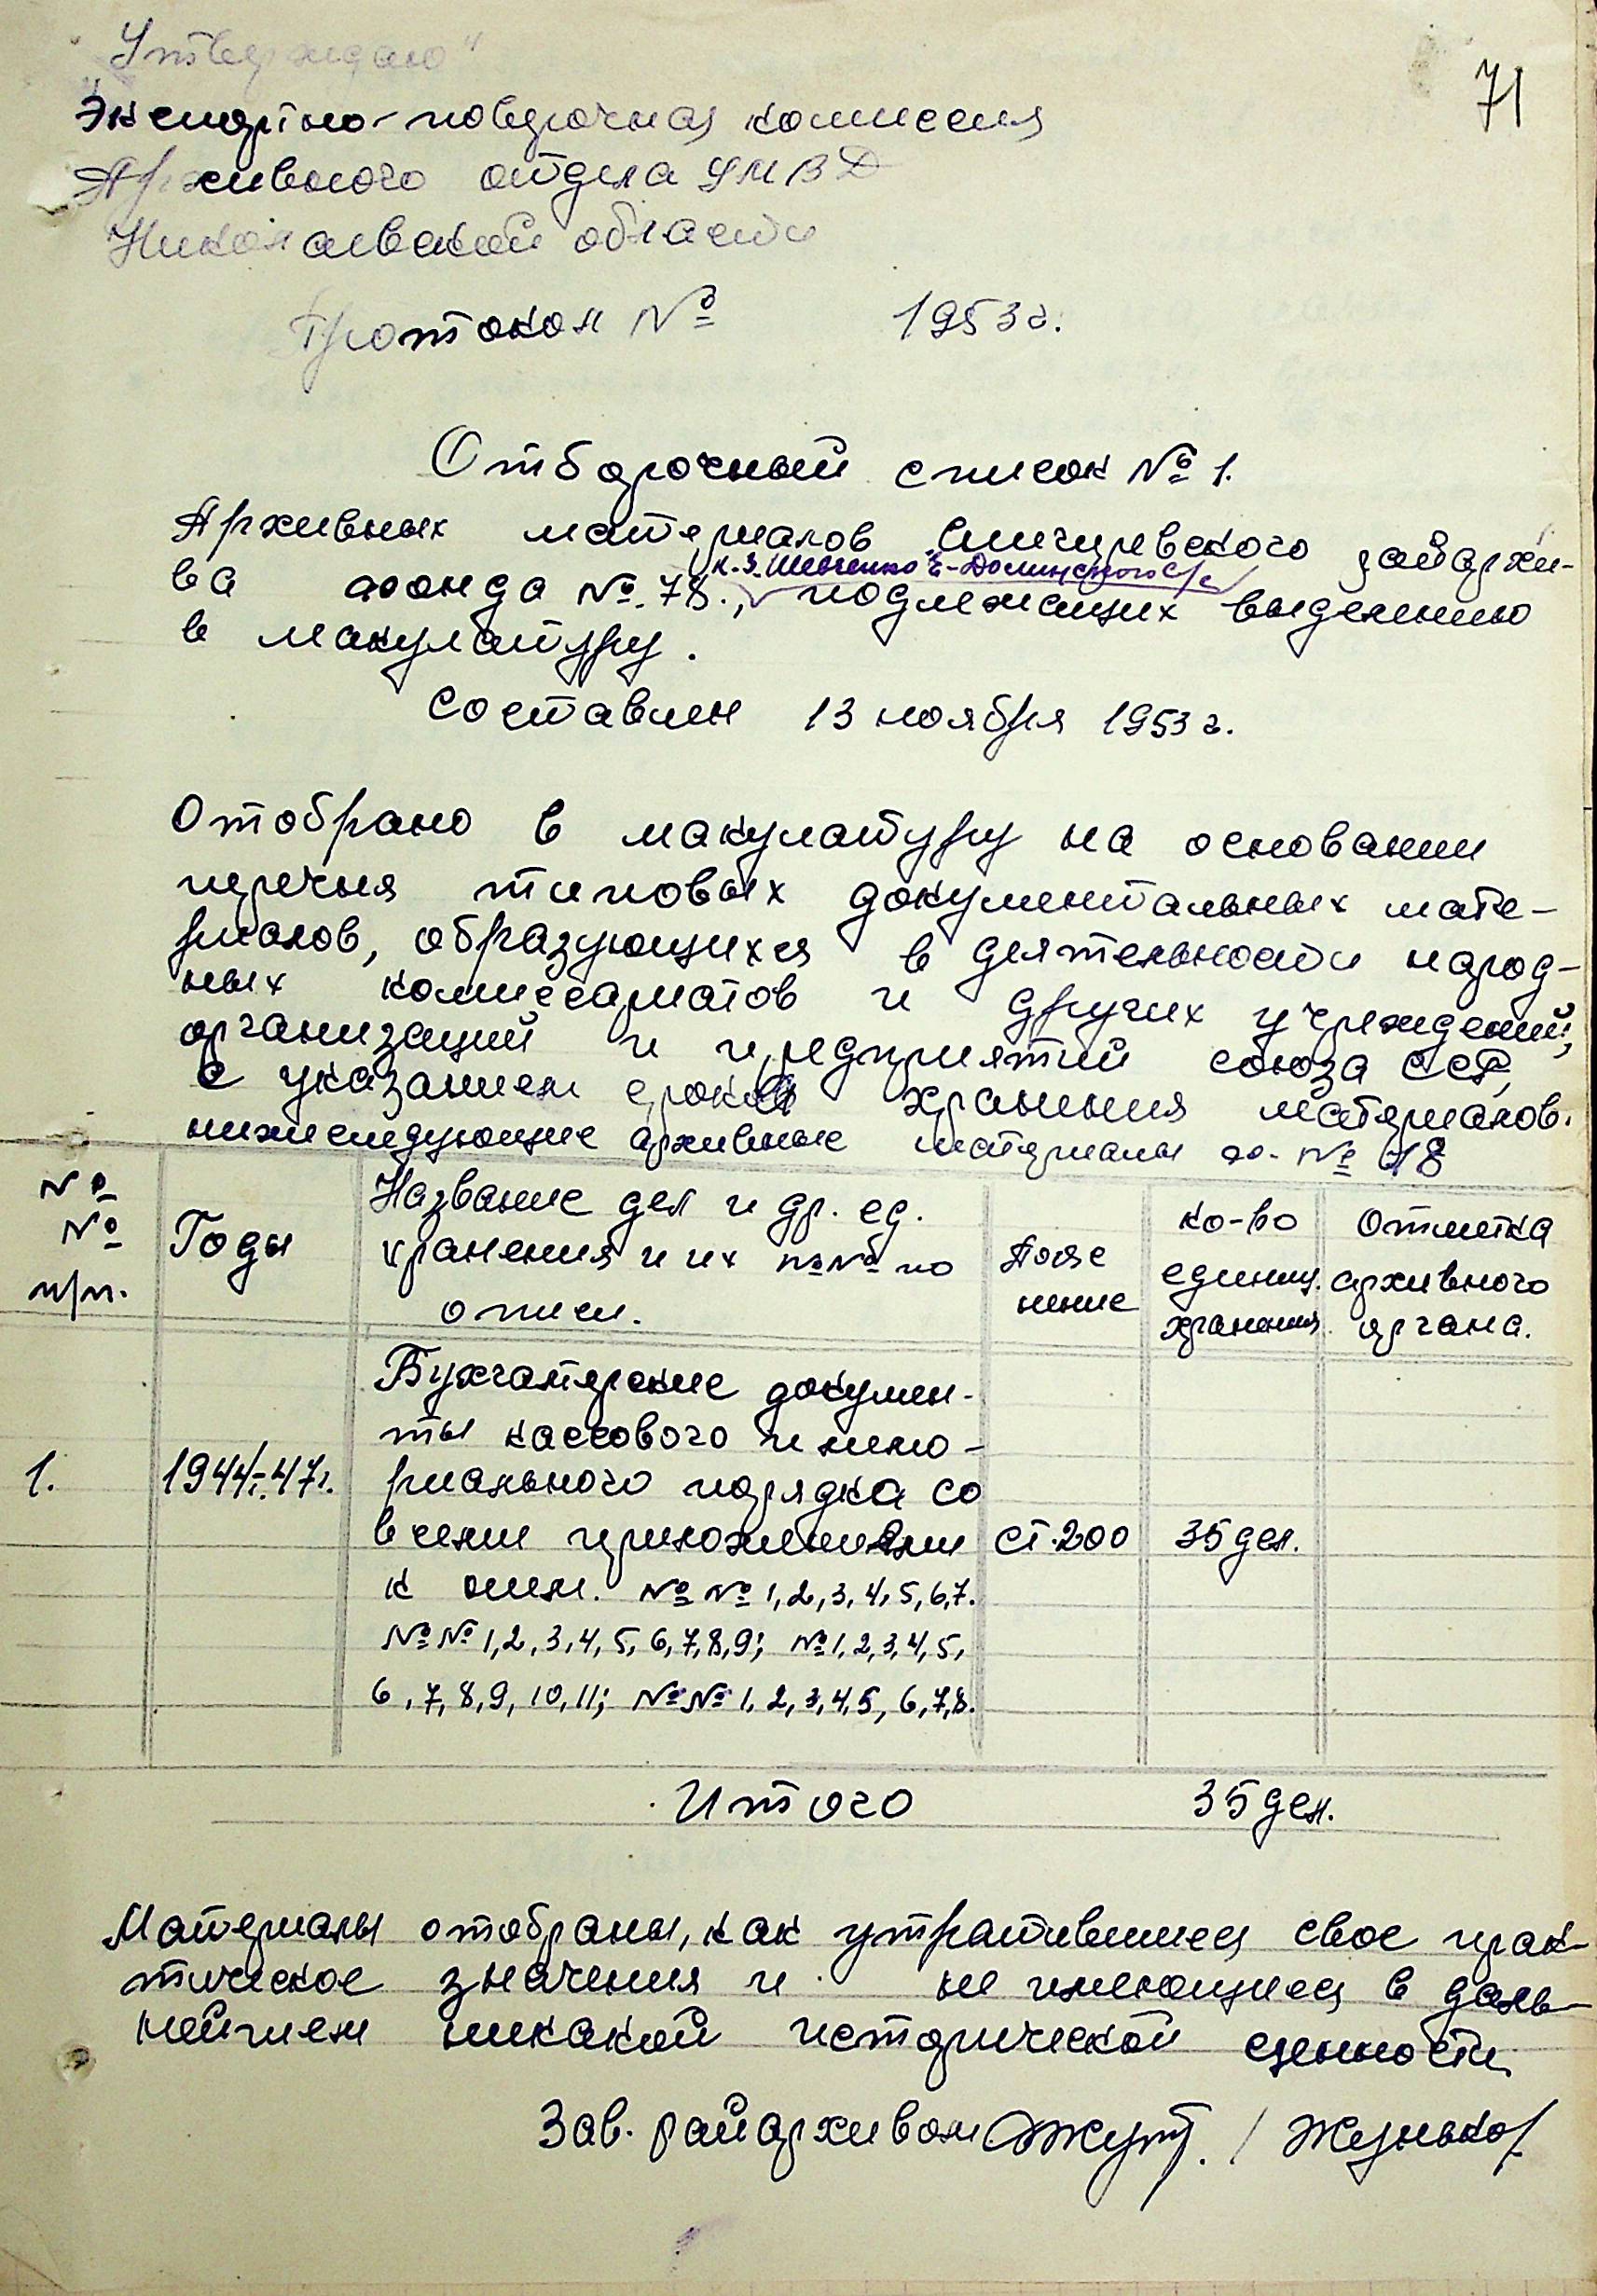 "Утверждаю"
71
Экспертно-поверочная комиссия
Архивного отдела УМВД
Николаевской области
Протокол № 1953 г.
Отборочный список № 1.
Архивных материалов Снигиревского райархи-
к-з. Шевченко Е-Долинского с/с
ва фонда № 78., подлежащих выделению
в макулатуру.
Составлен 13 ноября 1953 г.
Отобрано в макулатуру на основании
перечня типовых документальных мате-
риалов, образующихся в деятельности народ-
ных комиссариатов и других учреждений,
организаций и предприятий союза ССР,
с указанием сроков хранения материалов.
нижеследующие архивные материалы ф. № 78
№ № п/п.
Годы
Название дел и др. ед.
хранения и их №№ по
описи.
Поясне
нение
Ко-во
единиц.
хранения
Отметка
архивного
органа.
Бухгалтерские докумен-
ты кассового и мемо-
1. 1944-47г. риального порядка со
всеми приложениями ст.200 35 дел.
к ним. №№ 1,2,3,4,5,6,7.
№№ 1,2,3,4,5,6,7,8,9; № 1,2,3,4,5,
6,7,8,9,10,11; №№ 1,2,3,4,5,6,7,8.
Итого 35 дел.
Материалы отобраны, как утратившиеся свое прак-
тическое значения и не имеющиеся в даль-
нейшем никакой исторической ценности
Зав. райархивом / Жунько/